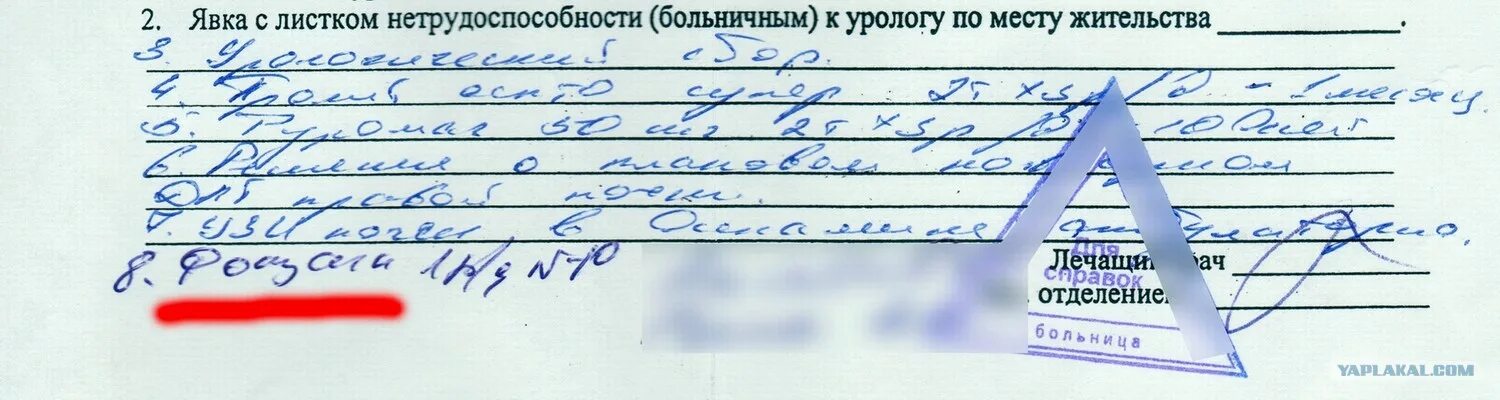 2. Явка с листком нетрудоспособности (больничным) к урологу по месту жительства ____________.
3. Урологический сбор.
4. Пролит супер 2т x 3р/д - 1 месяц.
5. 50 мг 2т x 3р/д 10 дней
6. Решение о плановом
ДЛТ правой почки.
7. УЗИ почек в динамике амбулаторно.
8. 1р/д №10
Для справок
Лечащий врач
отделением
больница
YAPLAKAL.COM